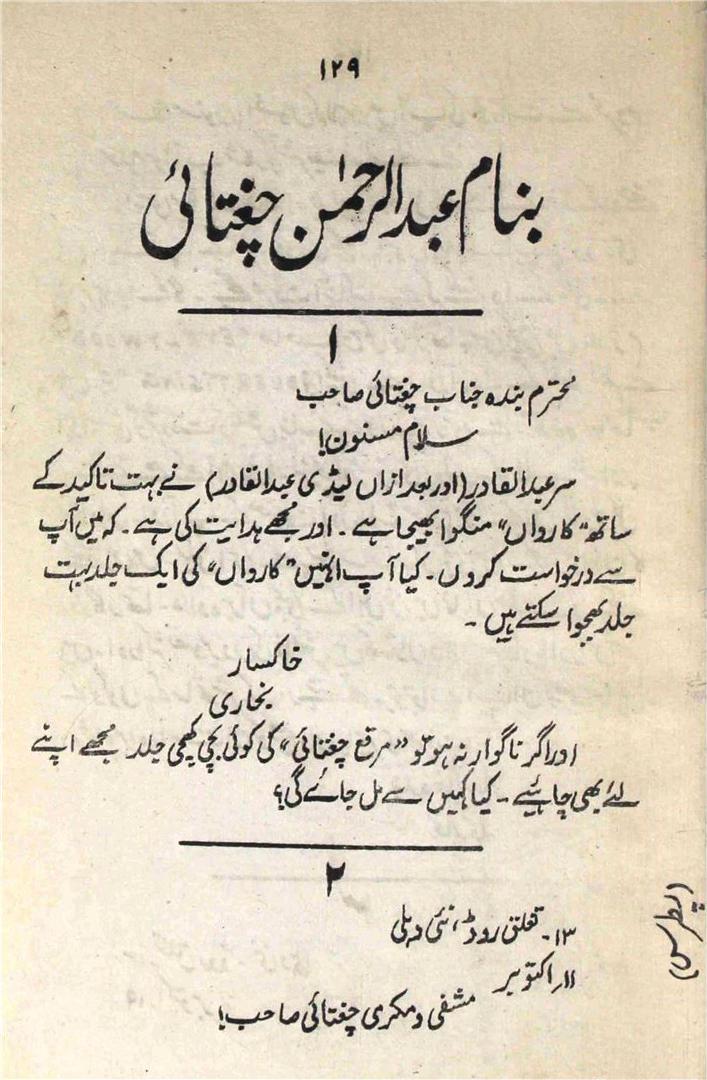 ۱۲۹
بنام عبدالرحمٰن چغتائی
۱
محترم بندہ جناب چغتائی صاحب
سلام مسنون!
سر عبدالقادر (اور بعد ازاں لیڈی عبدالقادر) نے بہت تاکید کے
ساتھ "کارواں" منگوا بھیجا ہے۔ اور مجھے ہدایت کی ہے۔ کہ میں آپ
سے درخواست کروں۔ کیا آپ انہیں "کارواں" کی ایک جلد بہت
جلد بھجوا سکتے ہیں۔
خاکسار
بخاری
اور اگر ناگوار نہ ہو تو "مرقع چغتائی" کی کوئی بچی کھچی جلد مجھے اپنے
لئے بھی چاہئیے۔ کیا کہیں سے مل جائے گی؟
۲
۱۳۔ تغلق روڈ، نئی دہلی
۱۱؍ اکتوبر
مشفی و مکری چغتائی صاحب!
(پطرس)